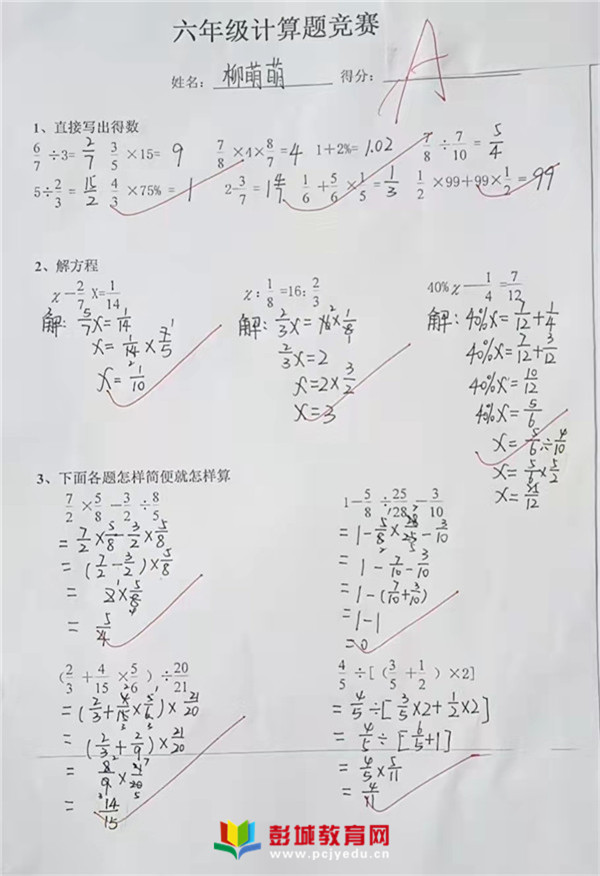 六年级计算题竞赛
姓名：柳萌萌 得分：A
1、直接写出得数
6/7 ÷3= 2/7 3/5 ×15= 9 7/8 ×4× 8/7 =4 1+2%=1.02 7/8 ÷ 7/10 = 5/4
5÷ 2/3 = 15/2 4/3 ×75% = 1 2- 3/7 =1 4/7 1/6 + 5/6 × 1/5 = 1/3 1/2 ×99+99× 1/2 = 99
2、解方程
χ- 2/7 X= 1/14
解：5/7 X= 1/14
X= 1/14 × 7/5
X= 1/10
χ：1/8 =16：2/3
解：2/3 X= 16× 1/8
2/3 X=2
X=2× 3/2
X=3
40%χ- 1/4 = 7/12
解：40%X= 7/12 + 1/4
40%X= 7/12 + 3/12
40%X= 10/12
40%X= 5/6
X= 5/6 ÷ 4/10
X= 5/6 × 5/2
X= 25/12
3、下面各题怎样简便就怎样算
7/2 × 5/8 - 3/2 ÷ 8/5
= 7/2 × 5/8 - 3/2 × 5/8
=( 7/2 - 3/2 )× 5/8
= 2× 5/8
= 5/4
1- 5/8 ÷ 25/28 - 3/10
=1- 5/8 × 28/25 - 3/10
=1- 7/10 - 3/10
=1-( 7/10 + 3/10 )
=1-1
=0
( 2/3 + 4/15 × 5/6 ) ÷ 20/21
=( 2/3 + 4/15 × 5/6 )× 21/20
=( 2/3 + 2/9 )× 21/20
= 8/9 × 21/20
= 14/15
4/5 ÷[( 3/5 + 1/2 ) ×2]
= 4/5 ÷[ 3/5 ×2+ 1/2 ×2]
= 4/5 ÷[ 6/5 +1]
= 4/5 × 5/11
= 4/11
彭城教育网
www.pcjyedu.cn